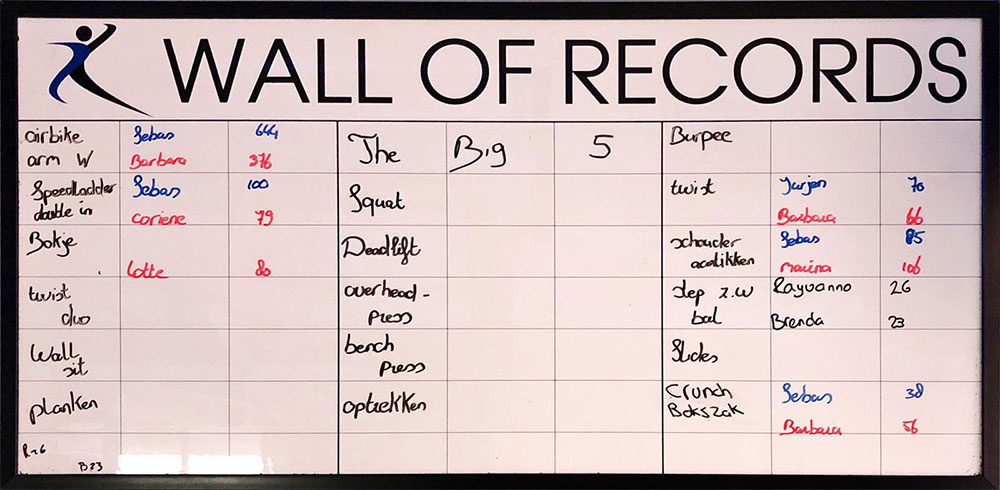 WALL OF RECORDS
airbike Sebas 644
arm W Barbara 376
Speedladder Sebas 100
double in Coriene 79
Bokje
Lotte 80
twist
duo
Wall
sit
planken
R 26
B23
The Big 5
Squat
Deadlift
overhead-
press
bench
press
optrekken
Burpee
twist Jurjen 70
Barbara 66
schouder Sebas 85
aantikken Marina 106
step z.w Rayvanno 26
bal Brenda 23
Slides
Crunch Sebas 38
Bokszak
Barbara 56